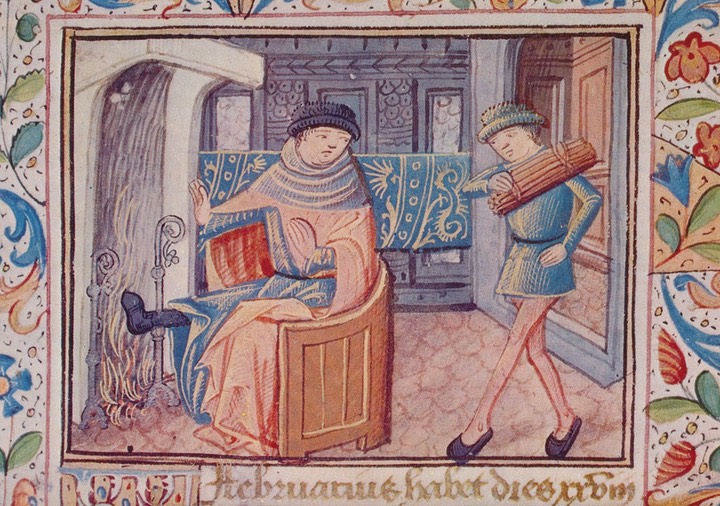 Februarius habet dies xxviii